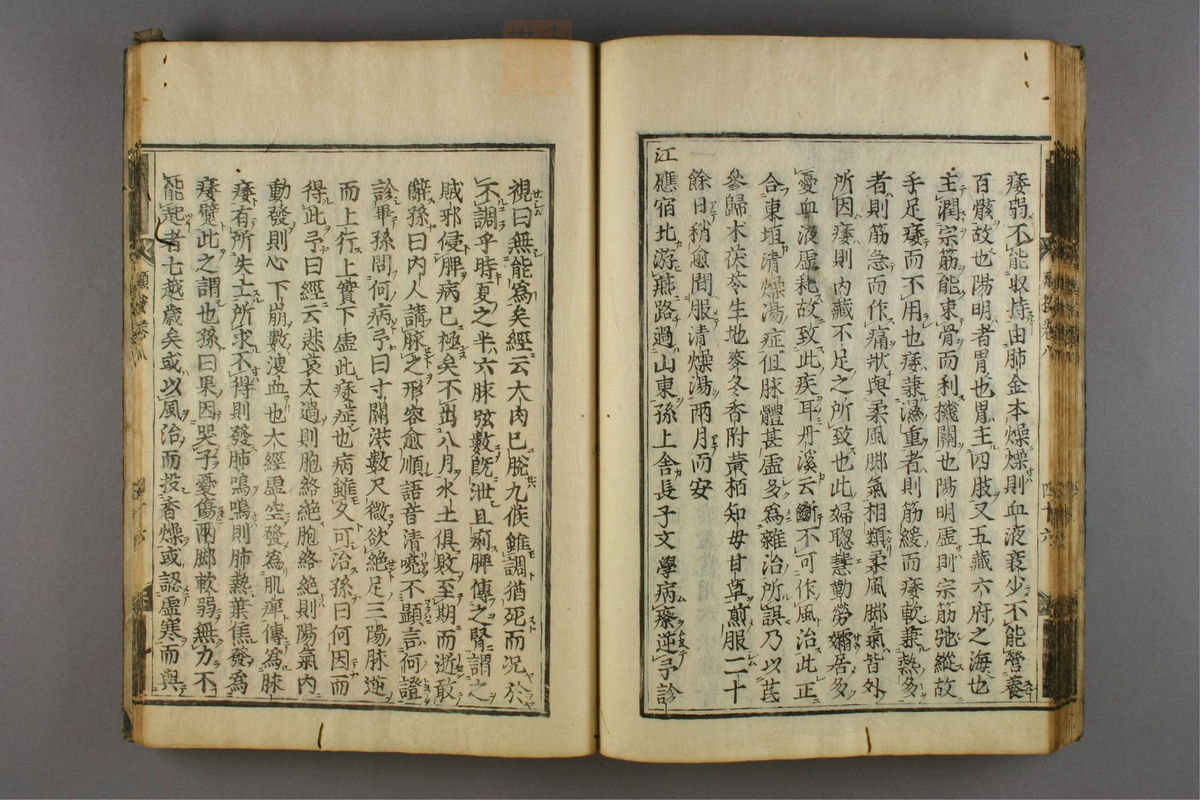 痿弱不能収持由肺金本燥燥則血液衰少不能營養
百骸故也陽明者胃也胃主四肢又五藏六府之海也
主潤宗筋能束骨而利機關也陽明虛則宗筋弛縱故
手足痿而不用也痿兼濕重者則筋緩而痿軟兼熱多
者則筋急而作痛狀與柔風脚氣相類柔風脚氣皆外
所因痿則内藏不足之所致也此婦聦慧勤勞孀居多
憂血液虛耗故致此疾耳丹溪云斷不可作風治此正
合東垣清燥湯症但脉體甚虛多為雜治所誤乃以芪
參歸术茯苓生地麥冬香附黄栢知毋甘草煎服二十
餘日稍愈間服清燥湯兩月而安
江應宿北游燕路過山東孫上舎長子文學病瘵逆予診
視曰無能爲矣經云大肉已脫九候雖調猶死而况於
不調乎時夏之半六脉弦數旣泄且痢脾傳之腎謂之
賊邪侵脾病已極矣不出八月水土俱敗至期而逝敢
辭孫曰内人請脉之形容愈順語音清喨不顯言何證
診畢孫問何病予曰寸關洪數尺微欲絶足三陽脉逆
而上行上實下虛此痿症也病雖久可治孫曰何因而
得此予曰經云悲哀太過則胞絡絶胞絡絶則陽氣内
動發則心下崩數溲血也大經虛空發為肌痺傳為脉
痿有所失士所求不得則發肺鳴鳴則肺熱葉焦發為
痿躄此之謂也孫曰果因哭子憂傷兩脚軟弱無力不
能起者七越歲矣或以風治而投香燥或認虛寒而與
類案卷八
四十六